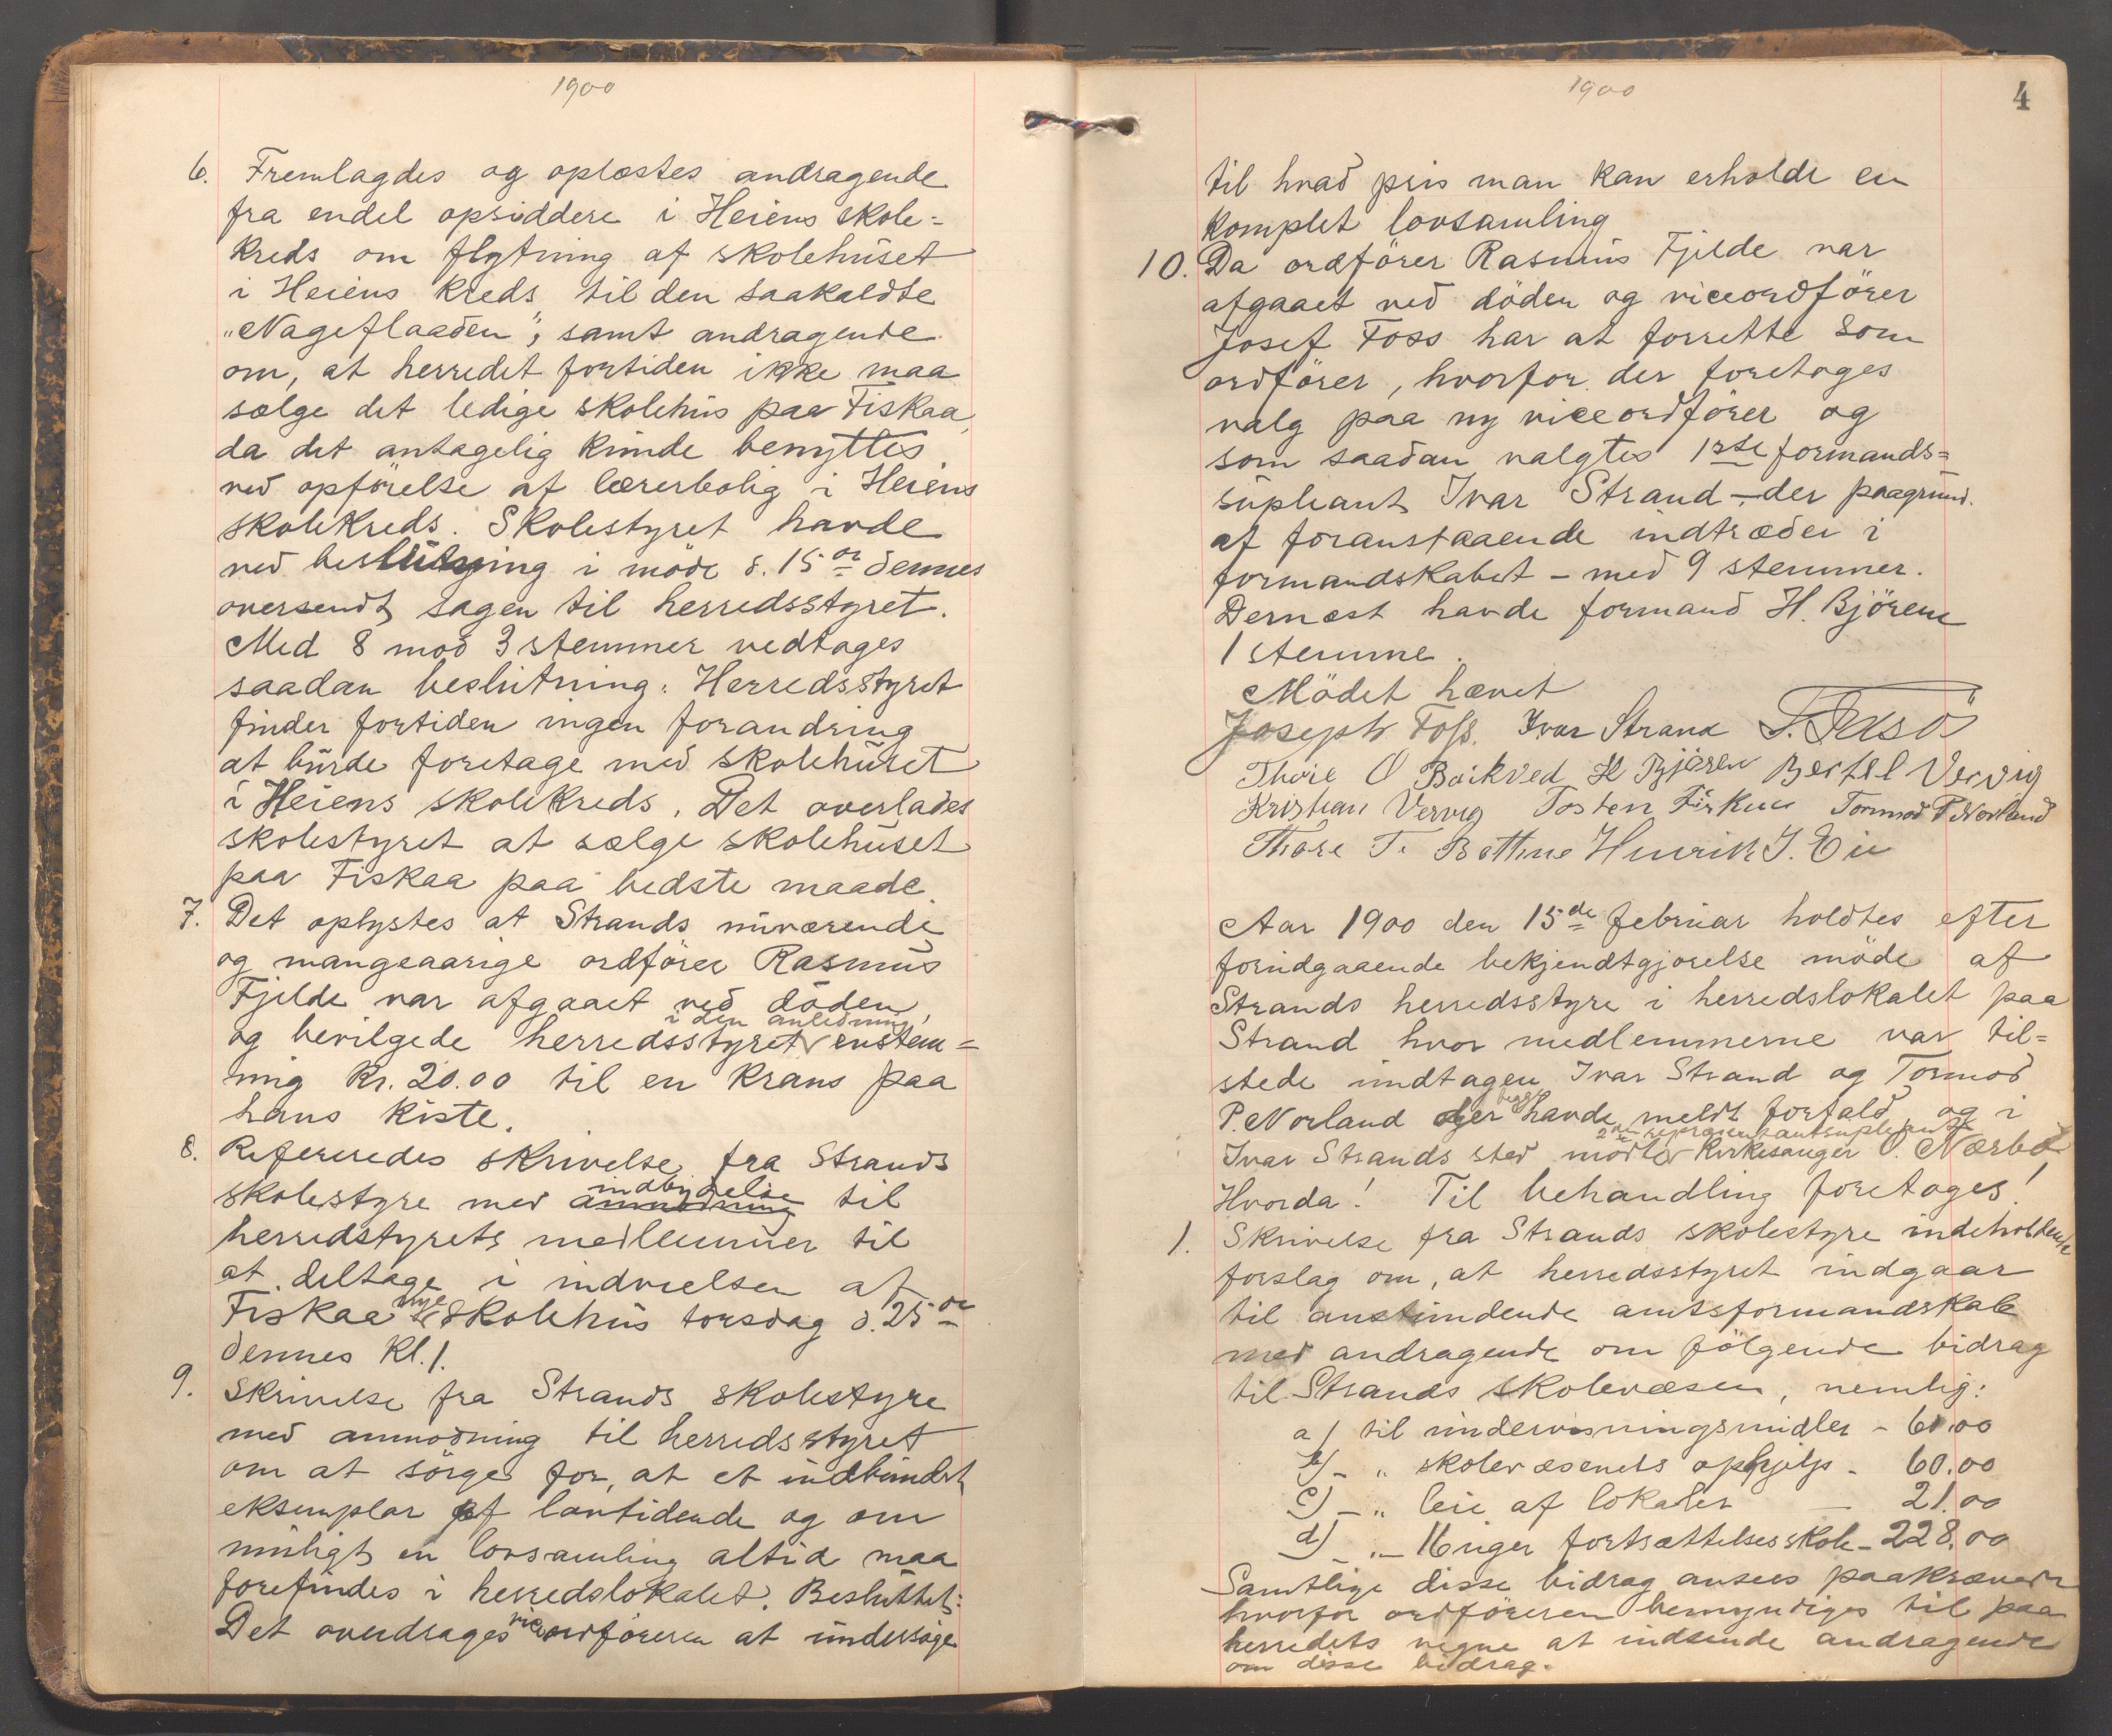 1900
6. Fremlagdes og oplæstes andragende
fra endel opsiddere i Heiens skole=
kreds om flytning af skolehuset
i Heiens kreds til den saakaldte
„Nageflaaden", samt andragende
om, at herredet fortiden ikke maa
sælge det ledige skolehus paa Fiskaa,
da det antagelig kunde benyttes
ved opförelse af lærerbolig i Heiens
skolekreds. Skolestyret havde
ved beslutning i möde d. 15de dennes
oversendt sagen til herredsstyret.
Med 8 mod 3 stemmer vedtages
saadan beslutning: Herredsstyret
finder fortiden ingen forandring
at burde foretage med skolehuset
i Heiens skolekreds. Det overlades
skolestyret at sælge skolehuset
paa Fiskaa paa bedste maade.
7. Det oplystes at Strands nuværende
og mangeaarige ordförer Rasmus
Fjelde var afgaaet ved döden,
i den anledning
og bevilgede herredsstyret enstem=
mig kr. 20.00 til en krans paa
hans kiste.
8. Refereredes skrivelse fra Strands
indbydelse
skolestyre med anmodning til
herredstyrets medlemmer til
at deltage i indvielsen af
nye
Fiskaa skolehus torsdag d. 25de
dennes kl. 1.
9. Skrivelse fra Strands skolestyre
med anmodning til herredsstyret
om at sörge for, at et indbundet
eksemplar af lovtidende og om
muligt en lovsamling altid maa
forefindes i herredslokalet. Besluttet:
Det overdrages viceordföreren at undersöge
1900
4
til hvad pris man kan erholde en
komplet lovsamling
10. Da ordförer Rasmus Fjelde var
afgaaet ved döden og viceordförer
Josef Foss har at forrette som
ordförer, hvorfor der foretages
valg paa ny viceordförer og
som saadan valgtes 1ste formands=
supleant Ivar Strand – der paagrund
af foranstaaende indtræder i
formandskabet – med 9 stemmer.
Dernæst havde formand H. Björen
1 stemme.
Mödet hævet
Joseph Foss. Ivar Strand
Thore O Barkved H Björen Bertel Vervig
Kristian Vervig Tosten Fiskaa Tormod P Norland
Thore T. Bottne Henrik J. Eie
Aar 1900 den 15de februar holdtes efter
forudgaaende bekjendtgjörelse möde af
Strands herredsstyre i herredslokalet paa
Strand hvor medlemmerne var til=
stede undtagen Ivar Strand og Tormod
begge
P. Norland der havde meldt forfald, og i
2den repræsentantsupleant
Ivar Strands sted mödte kirkesanger O. Nærbö
Hvorda! Til behandling foretages!
1. Skrivelse fra Strands skolestyre indeholdende
forslag om, at herredsstyret indgaar
til anstundende amtsformandskab
med andragende om fölgende bidrag
til Strands skolevæsen, nemlig:
a) til undervisningsmidler – 60.00
b) – „ skolevæsenets ophjelp – 60.00
c) – „ leie af lokaler — 21.00
d) – „ – 16 uger fortsættelsesskole – 228.00
Samtlige disse bidrag ansees paakrævede
hvorfor ordföreren bemyndiges til paa
herredets vegne at indsende andragende
om disse bidrag.